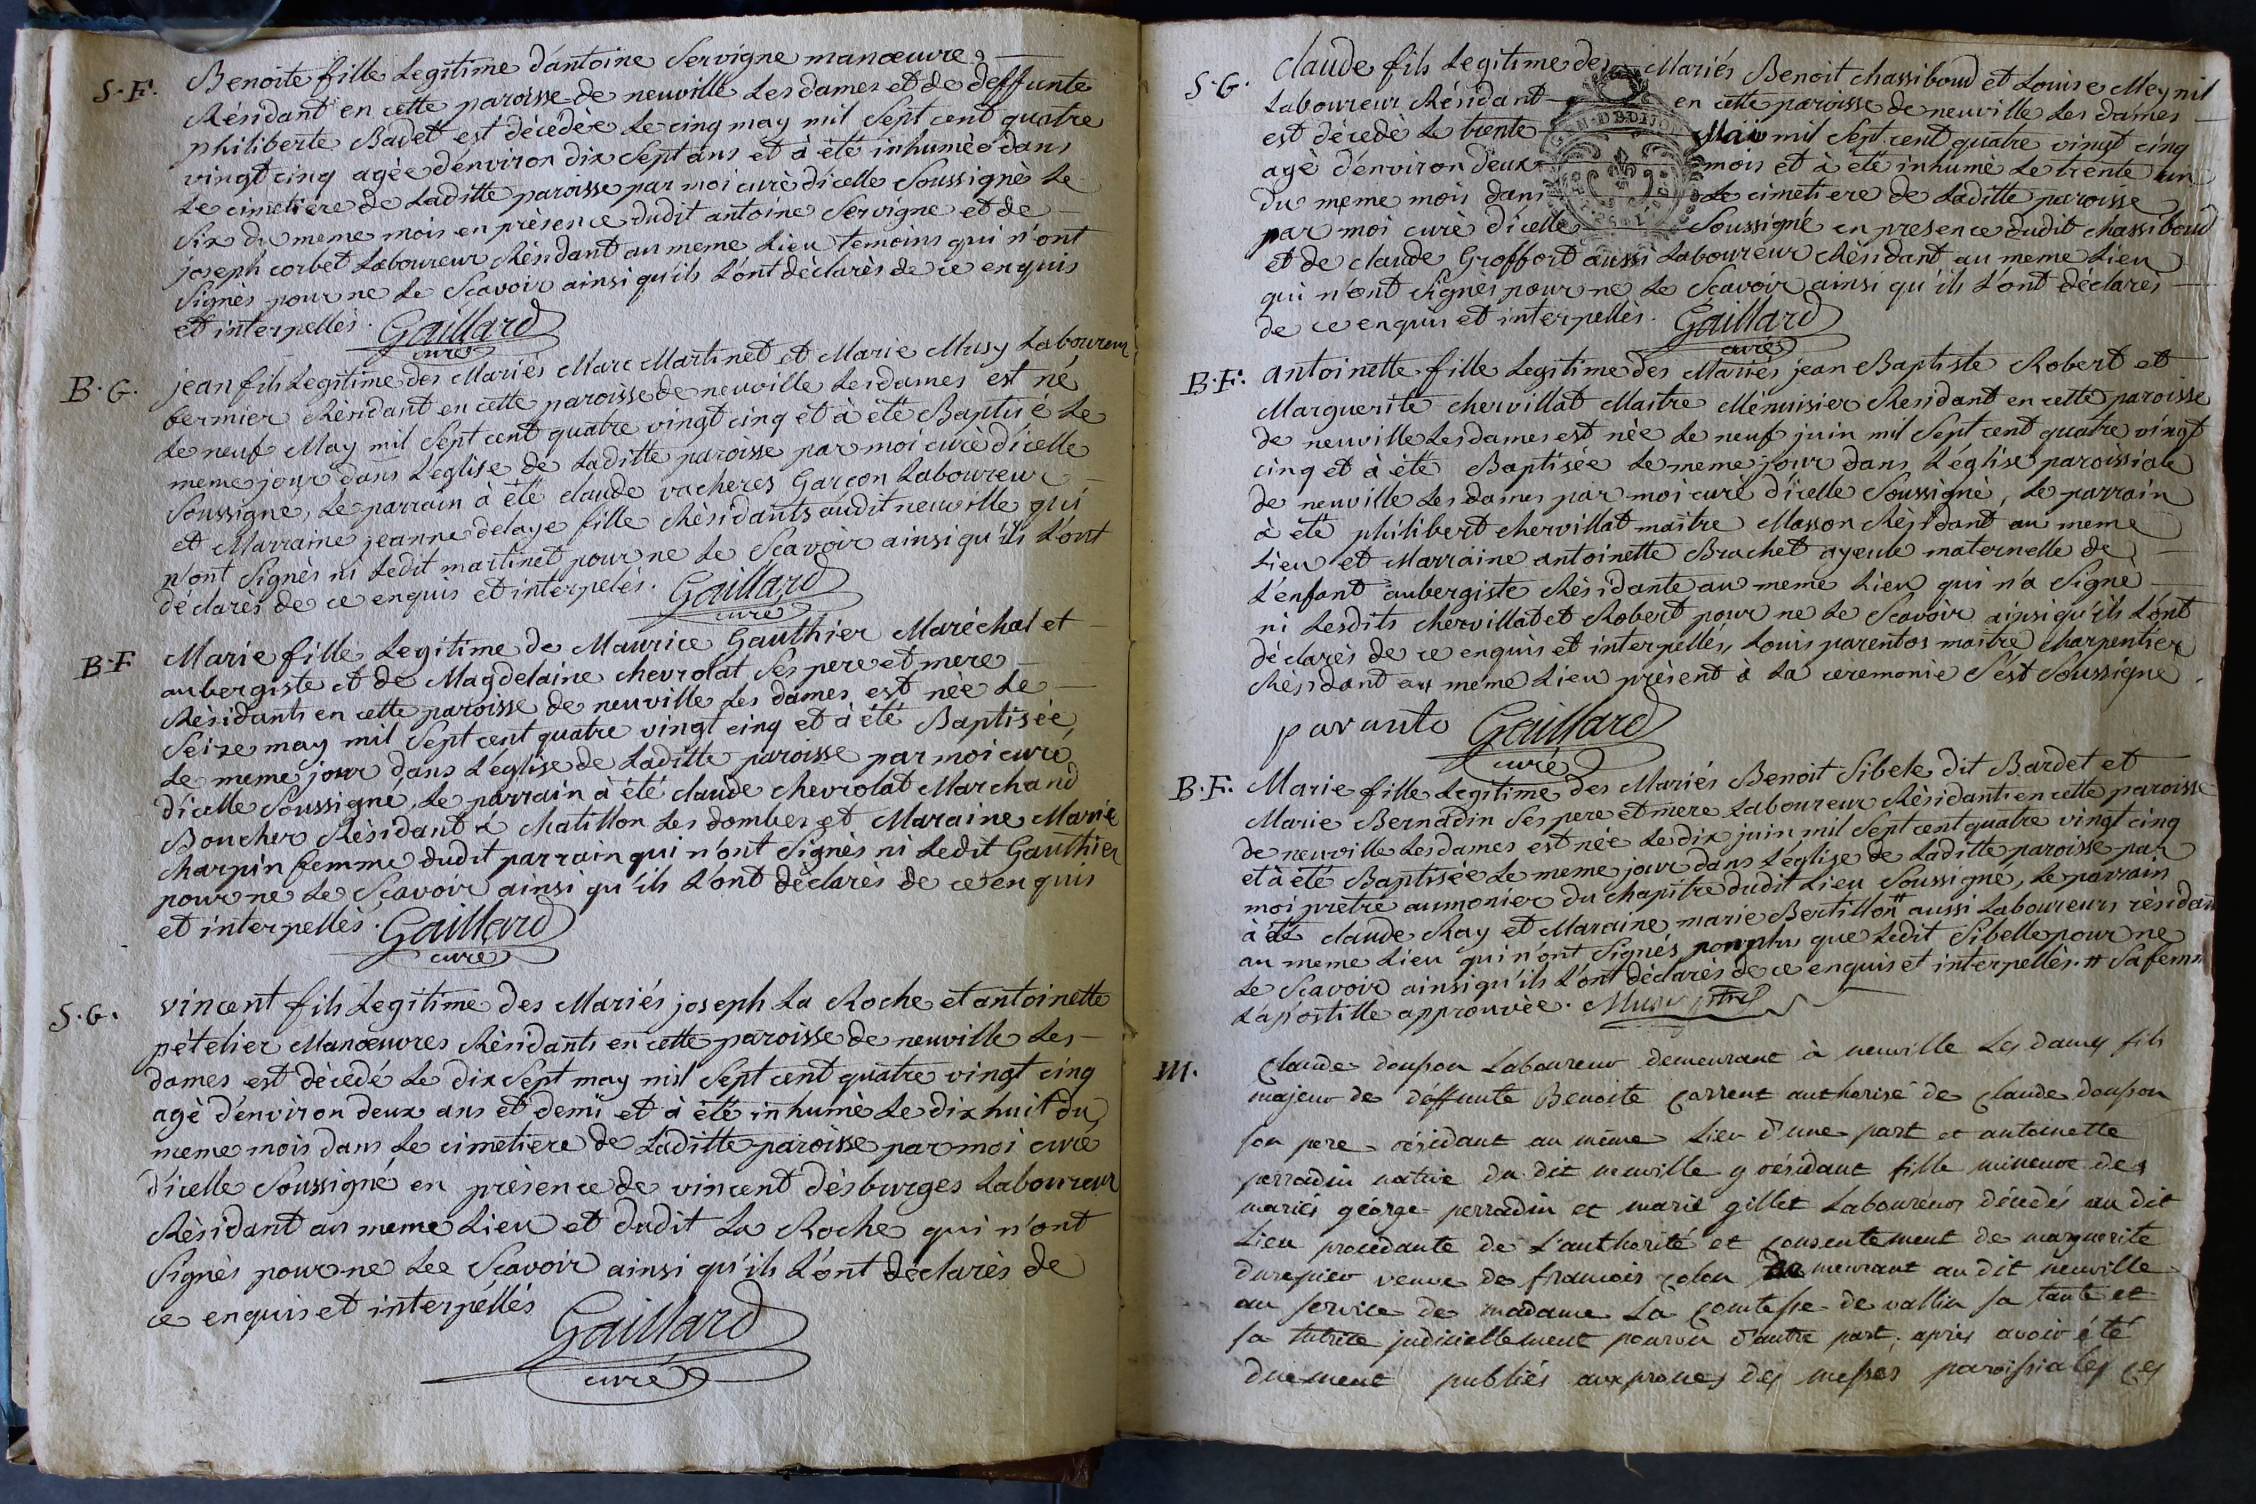 S.F. Benoite fille Legitime d'antoine Servigne manoeuvre
Résidant en cette paroisse de neuville Les dames et de deffunte
philiberte Badet est décédèe Le cinq may mil Sept cent quatre
vingt cinq agèe d'environ dix Sept ans et à été inhumèe dans
Le cimetiere de Laditte paroisse par moi curè d'icelle Soussignès Le
Six du meme mois en prèsence dudit antoine Servigne et de
joseph corbet Laboureur Résidant au meme Lieu temoins qui n'ont
Signès pour ne Le Scavoir ainsi qu'ils L'ont dèclarès de ce enquis
et interpellès. Gaillard
curé
B.G. jean fils Legitime des Mariés Marc Martinet et Marie Musy Laboureur
fermier Rèsidant en cette paroisse de neuville Les dames est né
Le neuf May mil Sept cent quatre vingt cinq et à été Baptisé Le
meme jour dans L'eglise de Laditte paroisse par moi curè d'icelle
Soussigne, Le parrain à été claude vacheres Garçon Laboureur
et Marraine jeanne delaye fille Résidants audit neuville qui
n'ont Signès ni Ledit martinet pour ne Le Scavoir ainsi qu'ils L'ont
déclarès de ce enquis et interpelés. Gaillard
curé
B.F Marie fille Legitime de Maurice Gauthier Maréchal et
aubergiste et de Magdelaine chevrolat Ses pere et mere
Résidants en cette paroisse de neuville Les dames est née Le
Seize may mil Sept cent quatre vingt cinq et à été Baptisée
Le meme jour dans L'eglise de Laditte paroisse par moi curé
d'icelle Soussigné, Le parrain à été claude chevrolat Marchand
Boucher Résidant à Chatillon Les dombes et Maraine Marie
charpin femme dudit parrain qui n'ont Signès ni Ledit Gauthier
pour ne Le Scavoir ainsi qu'ils L'ont déclarès de ce enquis
et interpellès. Gaillard
curé
S.G. vincent fils Legitime des Mariés joseph La Roche et antoinette
pételier Manoeuvres Résidants en cette paroisse de neuville Les
dames est dècedé Le dix Sept may mil Sept cent quatre vingt cinq
agè d'environ deux ans et demi et à été inhumè Le dix huit du
meme mois dans Le cimetiere de Laditte paroisse par moi curé
d'icelle Soussigné en prèsence de vincent dèsburges Laboureur
Rèsidant au meme Lieu et dudit La Roche qui n'ont
Signès pour ne Lee Scavoir ainsi qu'ils L'ont déclarès de
ce enquis et interpéllés Gaillard
curé
S.G. Claude fils Legitime des Mariés Benoit chassiboud et Louise Meynil
Laboureur Résidant en cette paroisse de neuville Les dames
est dècedè Le trente Mai mil Sept cent quatre vingt cinq
agè d'environ deux mois et à été inhumè Le trente un
du meme mois dans Le cimetiere de Laditte paroisse
par moi curè d'icelle Soussigné en presence dudit chassiboud
et de claude Groffort aussi Laboureur Rèsidant au meme Lieu
qui n'ont Signès pour ne Le Scavoir ainsi qu'ils L'ont déclares
de ce enquis et interpellès. Gaillard
curé
B.F. antoinette fille Legitime des Mariés jean Baptiste Robert et
Marguerite chervillat Maitre Mènuisier Residant en cette paroisse
de neuville Les dames est nèe Le neuf juin mil Sept cent quatre vingt
cinq et à été Baptisée Le meme jour dans L'église paroissiale
de neuville Les dames par moi curé d'icelle Soussignè, Le parrain
à été philibert chervillat maitre Masson Rèsidant au meme
Lieu et Marraine antoinette Brachet ayeule maternelle de
L'enfant aubergiste Rèsidante au meme Lieu qui n'a Signè
ni Lesdits chervillat et Robert pour ne Le Scavoir ainsi qu'ils L'ont
déclarès de ce enquis et interpellés, Louis parentos maitre charpentier
Rèsidant au meme Lieu prèsent à La cèremonie S'est Soussigne.
paranto Gaillard
curé
B.F. Marie fille Legitime des Mariés Benoit Sibele dit Bardet et
Marie Bernadin Ses pere et mere Laboureur Rèsidant en cette paroisse
de neuville Les dames est née Le dix juin mil Sept cent quatre vingt cinq
et à été Baptisée Le meme jour dans L'église de Laditte paroisse par
moi prètre aumonier du chapitre dudit Lieu Soussigne, Le parrain
à été claude Ray et Maraine marie Bertillon # aussi Laboureurs rèsidan
au meme Lieu qui n'ont Signés non plus que Ledit Sibelle pour ne
Le Scavoir ainsi qu'ils L'ont dèclarès de ce enquis et interpellès. # Sa femme
L'apostille approuvèe.
M. Claude doupon Laboureur demeurant à neuville Les dames fils
majeur de déffunte Benoite Corrent authorisé de Claude doupon
son pere résidant au même Lieu d'une part et antoinette
perradin native du dit neuville y résidant fille mineure des
mariés géorge perradin et marie gillet Laboureurs décédés au dit
Lieu procédante de L'authorité et consentement de marguerite
veuve de francois colon demeurant au dit neuville
au service de madame La Comtesse de vallin sa tante et
sa tutrice judiciellement pourvu d'autre part, après avoir été
duement publiés aux prones des messes paroissiales Les